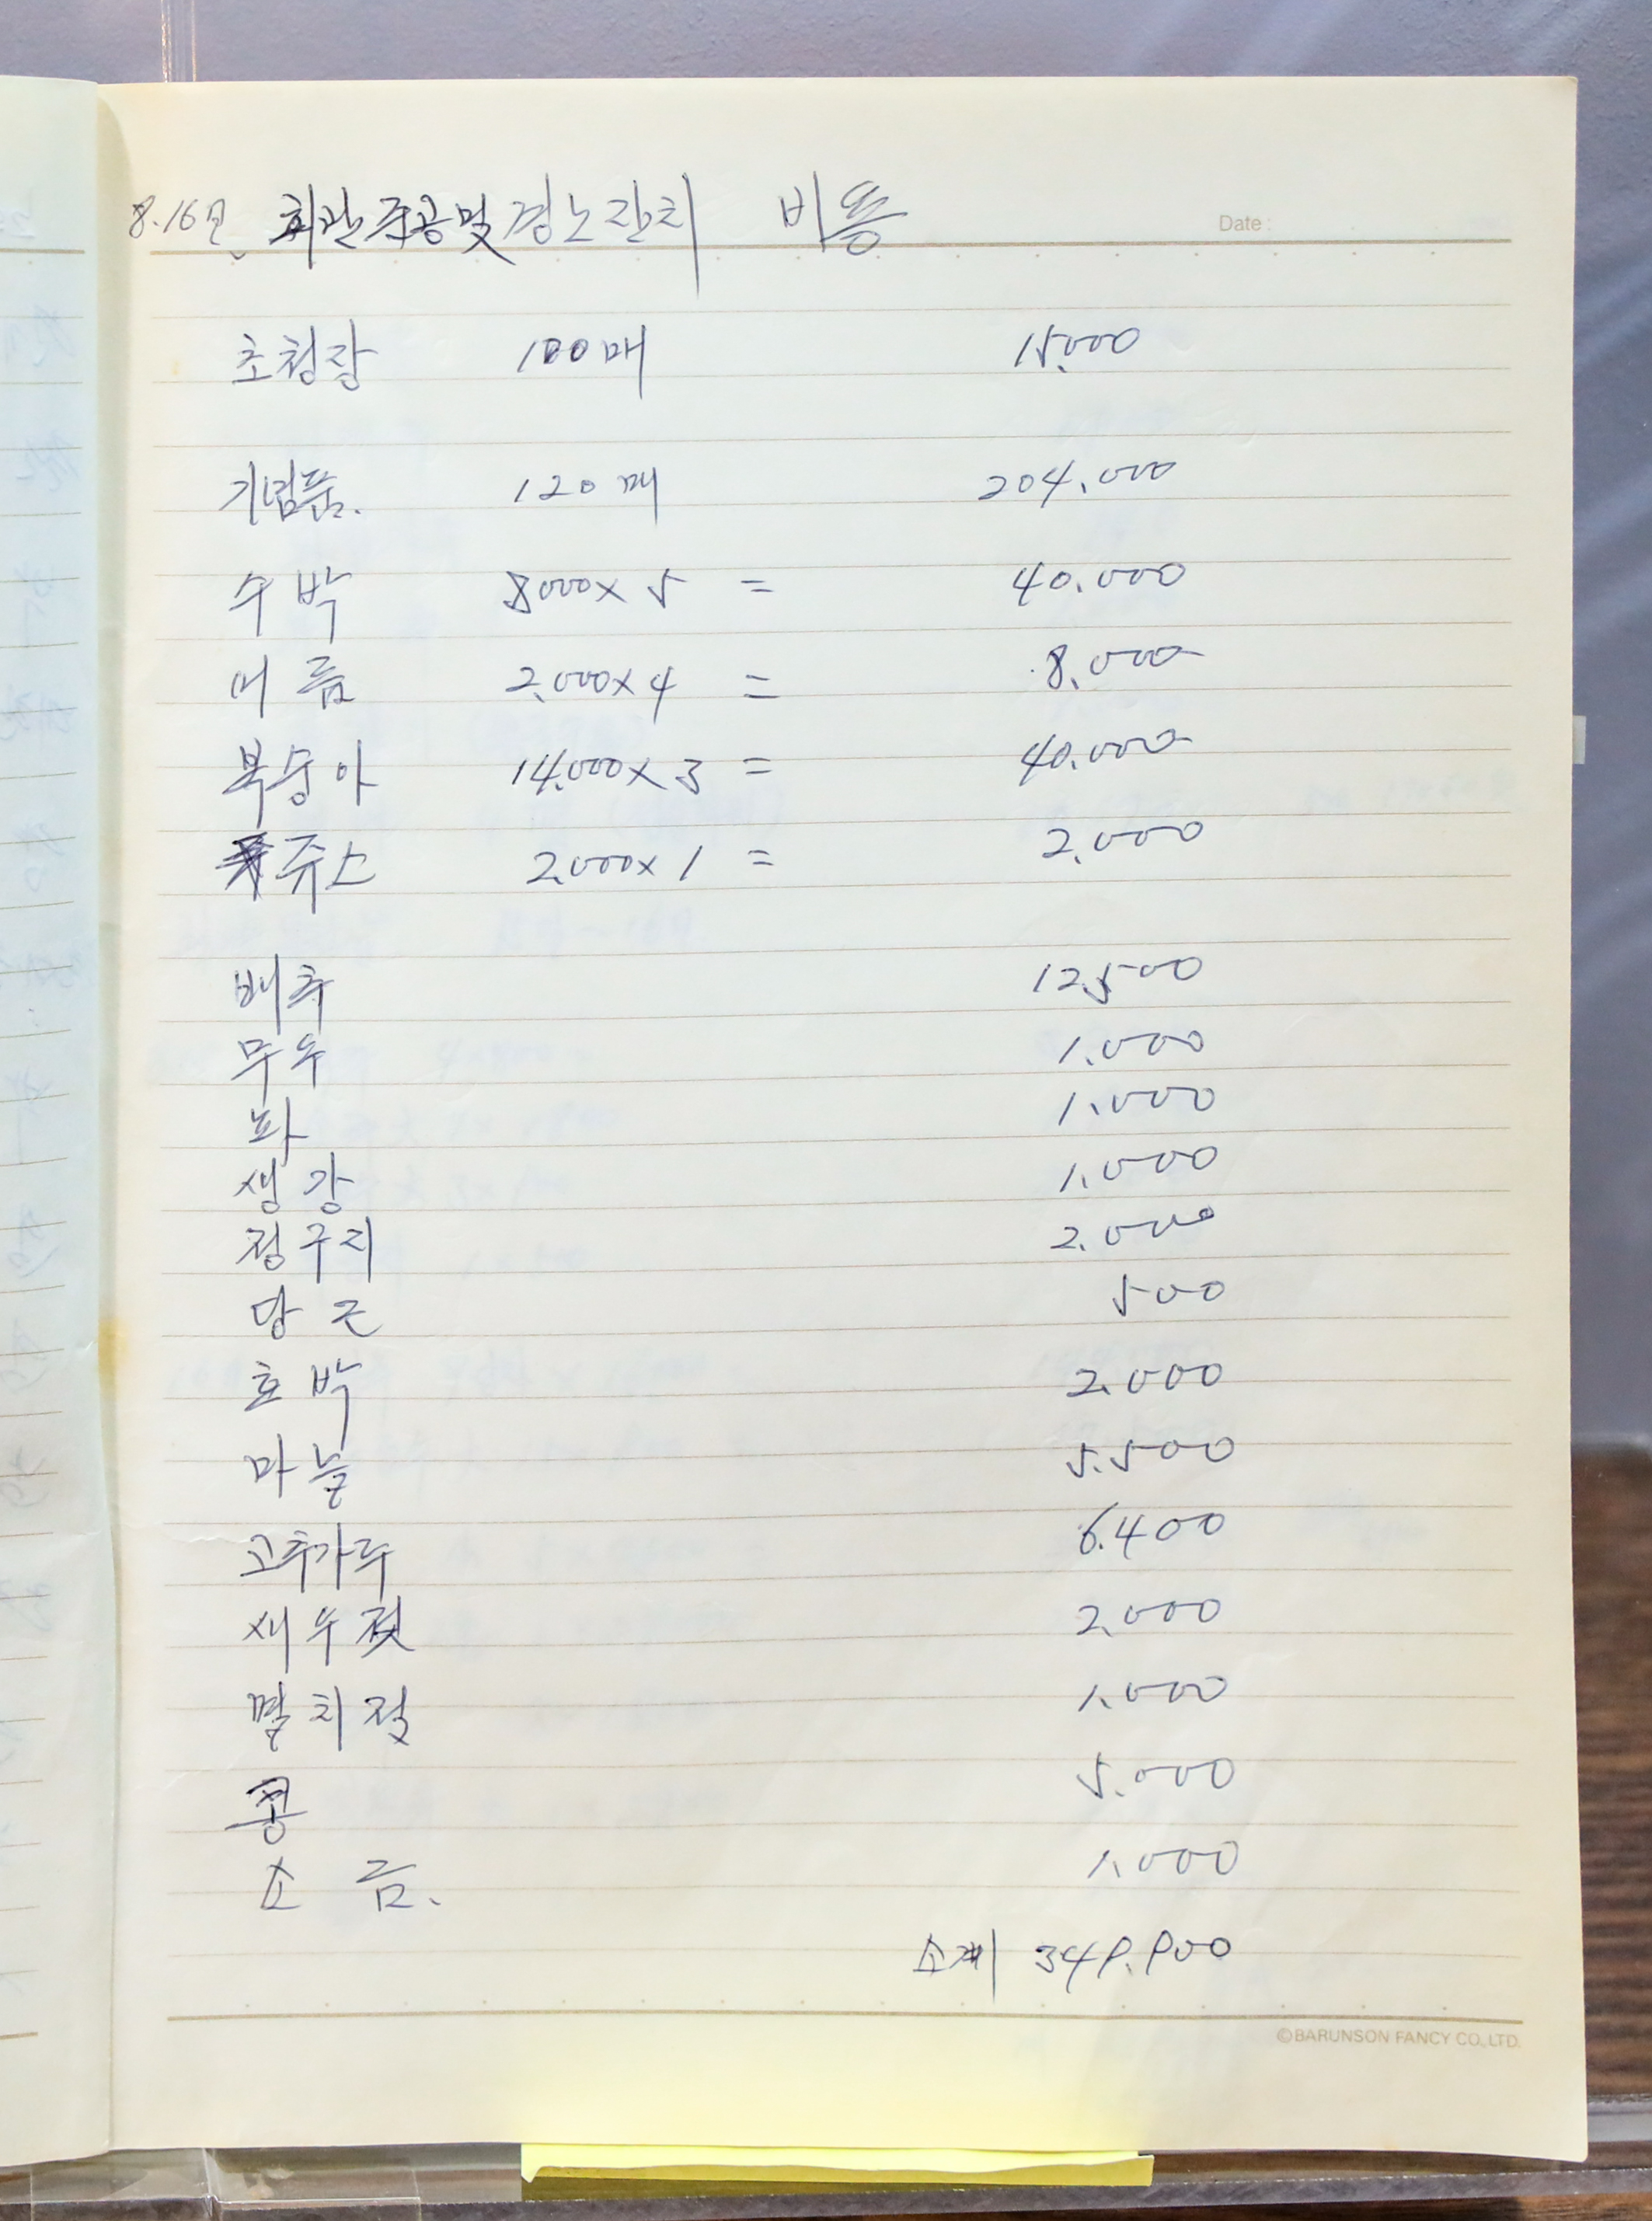 8.16일. 회관 주공 및 경노잔치 비용
Date :
초청장 100매 15.000
기념품. 120매 204.000
수박 8000 x 5 = 40.000
어름 2.000 x 4 = 8.000
복숭아 14.000 x 3 = 40.000
쥬스 2.000 x 1 = 2.000
배추 12.500
무우 1.000
파 1.000
생강 1.000
정구지 2.000
당근 500
호박 2.000
마늘 5.500
고추가루 6.400
새우젓 2.000
멸치젓 1.000
콩 5.000
소금. 1.000
소계 349.900
©BARUNSON FANCY CO., LTD.